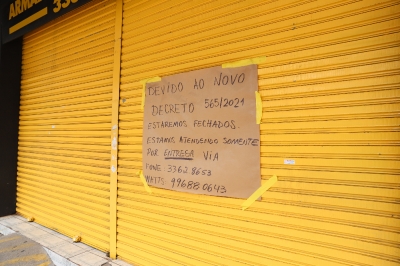 ARMA
336
DEVIDO AO NOVO
DECRETO 565/2021
ESTAREMOS FECHADOS.
ESTAMOS ATENDENDO SOMENTE
POR ENTREGA VIA
FONE 3362.8653
99688.0643